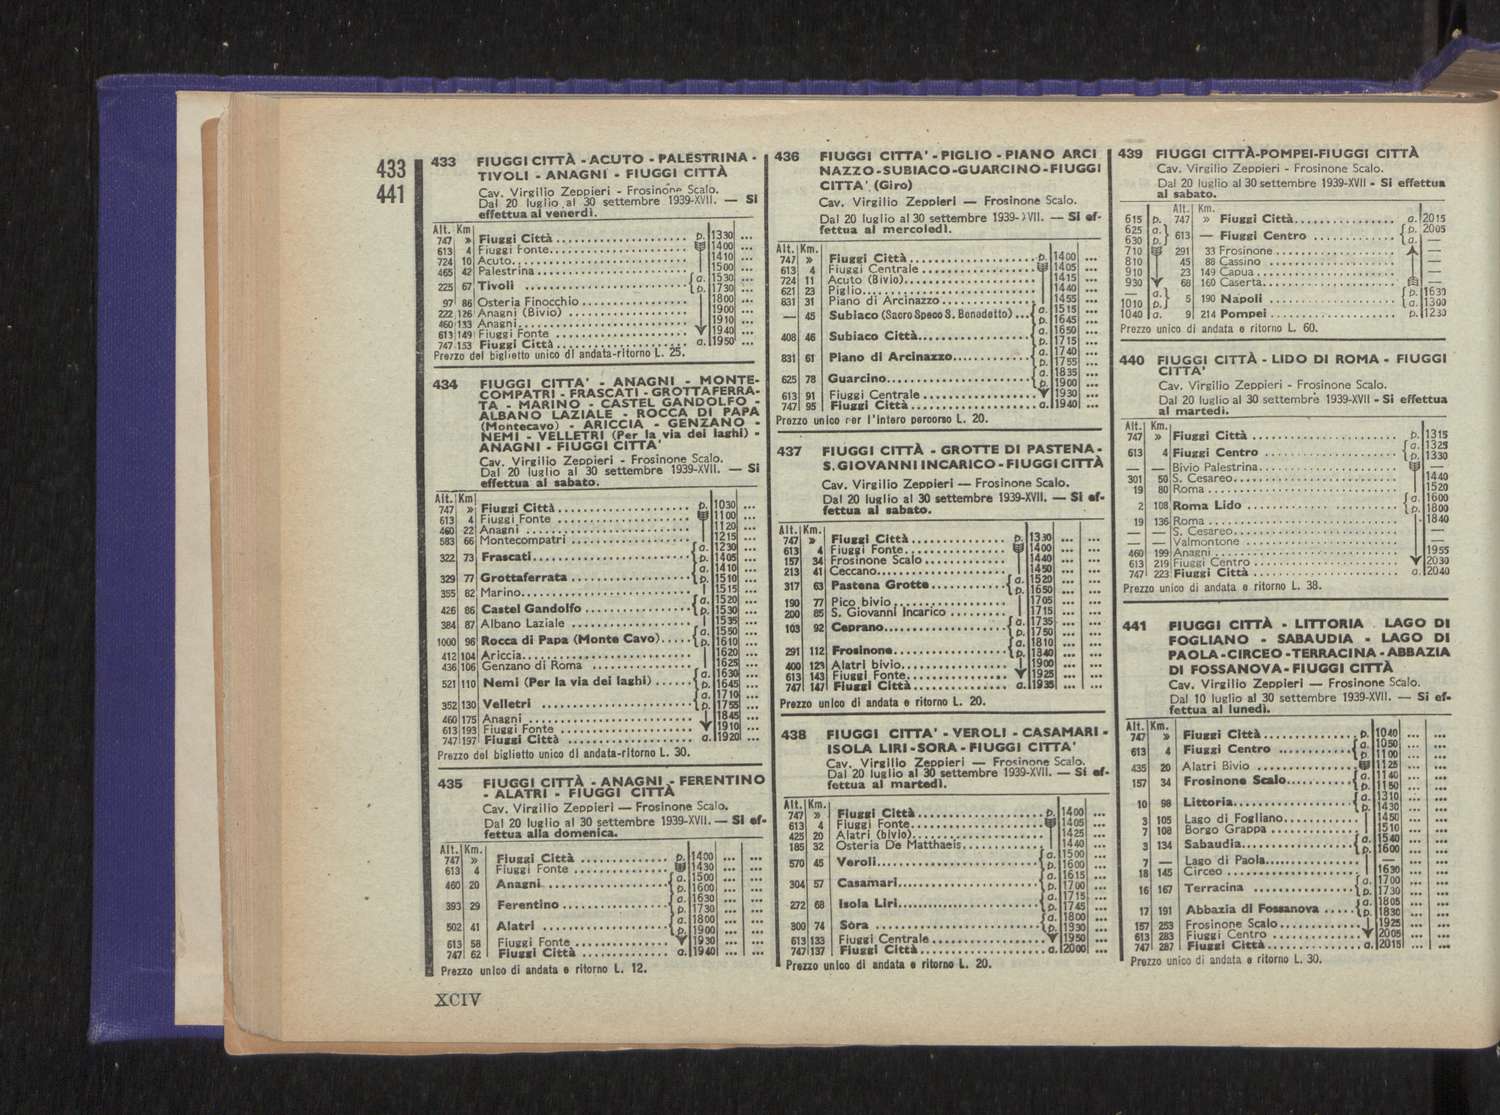 433
441
433 FIUGGI CITTÀ - ACUTO - PALESTRINA -
TIVOLI - ANAGNI - FIUGGI CITTÀ
Cav. Virgilio Zeppieri - Frosinone Scalo.
Dal 20 luglio al 30 settembre 1939-XVII. — Si
effettua al venerdì.
Alt. Km
747 » Fiuggi Città p. 1330 ...
613 4 Fiuggi Fonte 1400 ...
724 10 Acuto 1410 ...
465 42 Palestrina 1500 ...
225 67 Tivoli { a. 1530 ...
p. 1730 ...
97 86 Osteria Finocchio 1800 ...
222 126 Anagni (Bivio) 1900 ...
460 133 Anagni 1910 ...
613 149 Fiuggi Fonte 1940 ...
747 153 Fiuggi Città a. 1950 ...
Prezzo del biglietto unico di andata-ritorno L. 25.
434 FIUGGI CITTA' - ANAGNI - MONTE-
COMPATRI - FRASCATI - GROTTAFERRA-
TA - MARINO - CASTEL GANDOLFO -
ALBANO LAZIALE - ROCCA DI PAPA
(Montecavo) - ARICCIA - GENZANO -
NEMI - VELLETRI (Per la via dei laghi) -
ANAGNI - FIUGGI CITTA'
Cav. Virgilio Zeppieri - Frosinone Scalo.
Dal 20 luglio al 30 settembre 1939-XVII. — Si
effettua al sabato.
Alt. Km
747 » Fiuggi Città p. 1030 ...
613 4 Fiuggi Fonte 1100 ...
460 22 Anagni 1120 ...
583 66 Montecompatri 1215 ...
322 73 Frascati { a. 1230 ...
p. 1405 ...
329 77 Grottaferrata { a. 1410 ...
p. 1510 ...
355 82 Marino 1515 ...
426 86 Castel Gandolfo { a. 1520 ...
p. 1530 ...
384 87 Albano Laziale 1535 ...
1000 96 Rocca di Papa (Monte Cavo) { a. 1550 ...
p. 1610 ...
412 104 Ariccia 1620 ...
436 106 Genzano di Roma 1625 ...
521 110 Nemi (Per la via dei laghi) { a. 1630 ...
p. 1645 ...
352 130 Velletri { a. 1710 ...
p. 1755 ...
460 175 Anagni 1845 ...
613 193 Fiuggi Fonte 1910 ...
747 197 Fiuggi Città a. 1920 ...
Prezzo del biglietto unico di andata-ritorno L. 30.
435 FIUGGI CITTÀ - ANAGNI - FERENTINO
- ALATRI - FIUGGI CITTÀ
Cav. Virgilio Zeppieri — Frosinone Scalo.
Dal 20 luglio al 30 settembre 1939-XVII. — Si ef-
fettua alla domenica.
Alt. Km.
747 » Fiuggi Città p. 1400 ... ...
613 4 Fiuggi Fonte 1430 ... ...
460 20 Anagni { a. 1500 ... ...
p. 1600 ... ...
393 29 Ferentino { a. 1630 ... ...
p. 1730 ... ...
502 41 Alatri { a. 1800 ... ...
p. 1900 ... ...
613 58 Fiuggi Fonte 1930 ... ...
747 62 Fiuggi Città a. 1940 ... ...
Prezzo unico di andata e ritorno L. 12.
XCIV
436 FIUGGI CITTA' - PIGLIO - PIANO ARCI
NAZZO - SUBIACO - GUARCINO - FIUGGI
CITTA' (Giro)
Cav. Virgilio Zeppieri — Frosinone Scalo.
Dal 20 luglio al 30 settembre 1939-XVII. — Si ef-
fettua al mercoledì.
Alt. Km.
747 » Fiuggi Città p. 1400 ...
613 4 Fiuggi Centrale 1405 ...
724 11 Acuto (Bivio) 1415 ...
621 23 Piglio 1440 ...
831 31 Piano di Arcinazzo 1455 ...
— 45 Subiaco (Sacro Speco S. Benedetto) { a. 1515 ...
p. 1645 ...
408 46 Subiaco Città { a. 1650 ...
p. 1715 ...
831 61 Piano di Arcinazzo { a. 1740 ...
p. 1755 ...
625 78 Guarcino { a. 1835 ...
p. 1900 ...
613 91 Fiuggi Centrale 1930 ...
747 95 Fiuggi Città a. 1940 ...
Prezzo unico per l'intero percorso L. 20.
437 FIUGGI CITTÀ - GROTTE DI PASTENA -
S. GIOVANNI INCARICO - FIUGGI CITTÀ
Cav. Virgilio Zeppieri — Frosinone Scalo.
Dal 20 luglio al 30 settembre 1939-XVII. — Si ef-
fettua al sabato.
Alt. Km.
747 » Fiuggi Città p. 1330 ... ...
613 4 Fiuggi Fonte 1400 ... ...
157 34 Frosinone Scalo 1440 ... ...
213 41 Ceccano 1450 ... ...
317 63 Pastena Grotte { a. 1520 ... ...
p. 1650 ... ...
190 77 Pico bivio 1705 ... ...
200 85 S. Giovanni Incarico 1715 ... ...
103 92 Ceprano { a. 1735 ... ...
p. 1750 ... ...
291 112 Frosinone { a. 1810 ... ...
p. 1840 ... ...
400 123 Alatri bivio 1900 ... ...
613 143 Fiuggi Fonte 1925 ... ...
747 147 Fiuggi Città a. 1935 ... ...
Prezzo unico di andata e ritorno L. 20.
438 FIUGGI CITTA' - VEROLI - CASAMARI -
ISOLA LIRI - SORA - FIUGGI CITTA'
Cav. Virgilio Zeppieri — Frosinone Scalo.
Dal 20 luglio al 30 settembre 1939-XVII. — Si ef-
fettua al martedì.
Alt. Km.
747 » Fiuggi Città p. 1400 ...
613 4 Fiuggi Fonte 1405 ...
425 20 Alatri (bivio) 1425 ...
185 32 Osteria De Matthaeis 1440 ...
570 45 Veroli { a. 1500 ...
p. 1600 ...
304 57 Casamari { a. 1615 ...
p. 1700 ...
272 68 Isola Liri { a. 1715 ...
p. 1745 ...
300 74 Sora { a. 1800 ...
p. 1930 ...
613 133 Fiuggi Centrale 1950 ...
747 137 Fiuggi Città a. 2000 ...
Prezzo unico di andata e ritorno L. 20.
439 FIUGGI CITTÀ-POMPEI-FIUGGI CITTÀ
Cav. Virgilio Zeppieri - Frosinone Scalo.
Dal 20 luglio al 30 settembre 1939-XVII - Si effettua
al sabato.
Alt. Km.
615 p. 747 » Fiuggi Città a. 2015
625 a. } 613 — Fiuggi Centro { p. 2005
630 p. a. —
710 291 33 Frosinone —
810 45 88 Cassino —
910 23 149 Capua —
930 68 160 Caserta —
— a. } 5 190 Napoli { p. 1630
1010 p. a. 1300
1040 a. 9 214 Pompei p. 1230
Prezzo unico di andata e ritorno L. 60.
440 FIUGGI CITTÀ - LIDO DI ROMA - FIUGGI
CITTA'
Cav. Virgilio Zeppieri - Frosinone Scalo.
Dal 20 luglio al 30 settembre 1939-XVII - Si effettua
al martedì.
Alt. Km.
747 » Fiuggi Città p. 1315
613 4 Fiuggi Centro { a. 1325
p. 1330
— — Bivio Palestrina —
301 50 S. Cesareo 1440
19 80 Roma 1520
2 108 Roma Lido { a. 1600
p. 1800
19 136 Roma 1840
— — S. Cesareo —
— — Valmontone —
460 199 Anagni 1955
613 219 Fiuggi Centro 2030
747 223 Fiuggi Città a. 2040
Prezzo unico di andata e ritorno L. 38.
441 FIUGGI CITTÀ - LITTORIA LAGO DI
FOGLIANO - SABAUDIA - LAGO DI
PAOLA - CIRCEO - TERRACINA - ABBAZIA
DI FOSSANOVA - FIUGGI CITTÀ
Cav. Virgilio Zeppieri — Frosinone Scalo.
Dal 10 luglio al 30 settembre 1939-XVII. — Si ef-
fettua al lunedì.
Alt. Km.
747 » Fiuggi Città p. 1040 ... ...
613 4 Fiuggi Centro { a. 1050 ... ...
p. 1100 ... ...
435 20 Alatri Bivio 1125 ... ...
157 34 Frosinone Scalo { a. 1140 ... ...
p. 1150 ... ...
10 98 Littoria { a. 1310 ... ...
p. 1430 ... ...
3 105 Lago di Fogliano 1450 ... ...
7 108 Borgo Grappa 1510 ... ...
3 134 Sabaudia { a. 1540 ... ...
p. 1600 ... ...
7 — Lago di Paola — ... ...
18 145 Circeo 1630 ... ...
16 167 Terracina { a. 1700 ... ...
p. 1730 ... ...
17 191 Abbazia di Fossanova { a. 1805 ... ...
p. 1830 ... ...
157 253 Frosinone Scalo 1925 ... ...
613 283 Fiuggi Centro 2005 ... ...
747 287 Fiuggi Città a. 2015 ... ...
Prezzo unico di andata e ritorno L. 30.